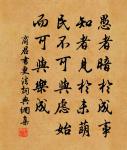 愚者暗於成事
知者見於未萌
民不可與慮始
而可與樂成
商君書更法詞典網集